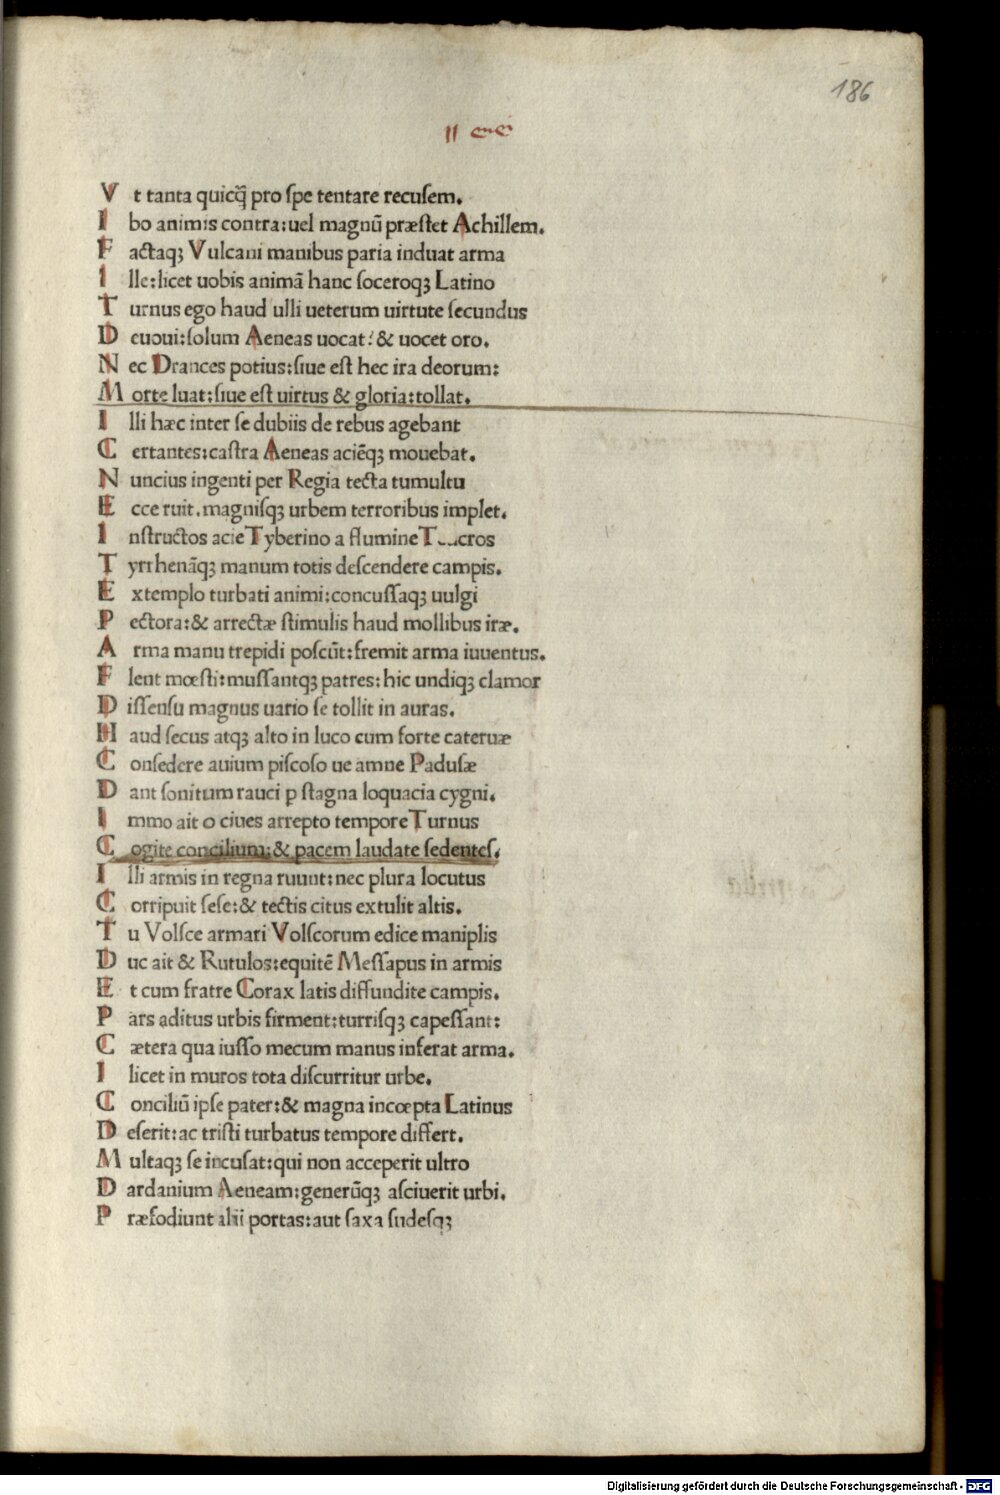 186
V t tanta quicq̃ pro ſpe tentare recuſem.
I bo animis contra:uel magnũ præſtet Achillem.
F actaqꝫ Vulcani manibus paria induat arma
I lle:licet uobis animã hanc ſoceroqꝫ Latino
T urnus ego haud ulli ueterum uirtute ſecundus
D euoui:ſolum Aeneas uocat:& uocet oro.
N ec Drances potius:ſiue eſt hec ira deorum:
M orte luat:ſiue eſt uirtus & gloria:tollat.
I lli hæc inter ſe dubiis de rebus agebant
C ertantes:caſtra Aeneas aciẽqꝫ mouebat.
N uncius ingenti per Regia tecta tumultu
E cce ruit.magniſqꝫ urbem terroribus implet.
I nſtructos acie Tyberino a flumine Teucros
T yrrhenãqꝫ manum totis deſcendere campis.
E xtemplo turbati animi:concuſſaqꝫ uulgi
P ectora:& arrectæ ſtimulis haud mollibus iræ.
A rma manu trepidi poſcũt:fremit arma iuuentus.
F lent mœſti:muſſantqꝫ patres:hic undiqꝫ clamor
D iſſenſu magnus uario ſe tollit in auras.
H aud ſecus atqꝫ alto in luco cum forte cateruæ
C onſedere auium piſcoſo ue amne Paduſæ
D ant ſonitum rauci p ſtagna loquacia cygni.
I mmo ait o ciues arrepto tempore Turnus
C ogite concilium:& pacem laudate ſedentes.
I lli armis in regna ruunt:nec plura locutus
C orripuit ſeſe:& tectis citus extulit altis.
T u Volſce armari Volſcorum edice maniplis
D uc ait & Rutulos:equitẽ Meſſapus in armis
E t cum fratre Corax latis diffundite campis.
P ars aditus urbis firment:turriſqꝫ capeſſant:
C ætera qua iuſſo mecum manus inferat arma.
I licet in muros tota diſcurritur urbe.
C onciliũ ipſe pater:& magna incœpta Latinus
D eſerit:ac triſti turbatus tempore differt.
M ultaqꝫ ſe incuſat:qui non acceperit ultro
D ardanium Aeneam:generũqꝫ aſciuerit urbi.
P ræfodiunt alii portas:aut ſaxa ſudeſqꝫ
Digitalisierung gefördert durch die Deutsche Forschungsgemeinschaft - DFG